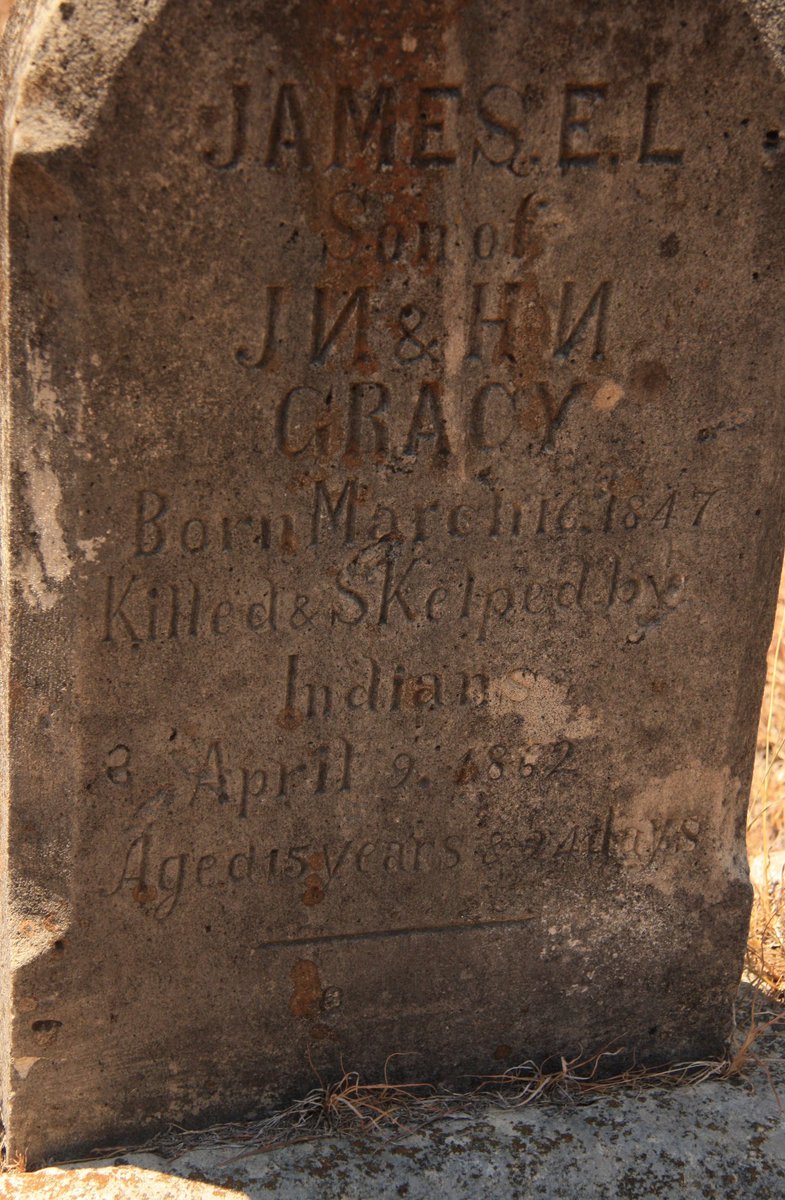 JAMES.E.L
Son of
J N & H N
GRACY
Born March 16. 1847
Killed & SKelped by
Indians
April 9. 1862
Aged 15 years & 24 days